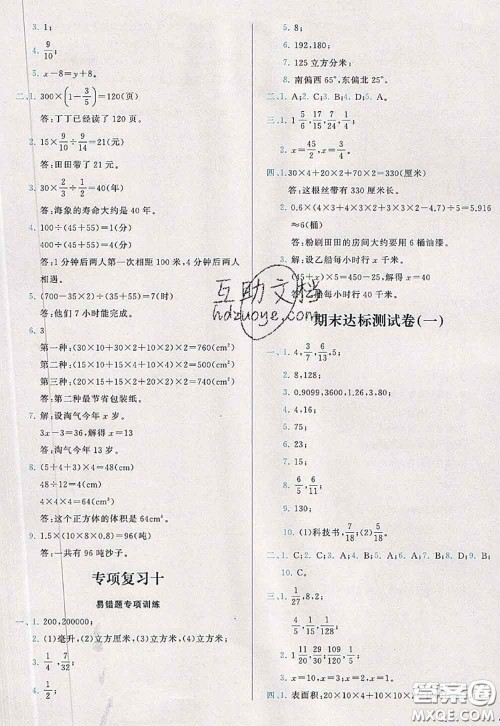 3. 1;
4. 9/10;
5. x-8=y+8。
二、1. 300×(1-3/5)=120(页)
答:丁丁已经读了 120 页。
2. 15×9/10÷9/14=21(元)
答:田田带了 21 元。
3. 30×2/3÷1/2=40(年)
答:海象的寿命大约是 40 年。
4. 100÷(45+55)=1(分钟)
400÷(45+55)=4(分钟)
答:1 分钟后两人第一次相距 100 米,4 分钟后两人
相遇。
5. (700-35×2)÷(35+55)=7(时)
答:他们 7 小时能完工。
6. 3
第一种:(30×10+30×2+10×2)×2=760(cm²)
第二种:(20×15+20×2+15×2)×2=740(cm²)
第三种:(15×10+15×4+10×4)×2=500(cm²)
答:第二种最节省包装纸。
7. 解:设淘气今年 x 岁。
3x-3=36,解得 x=13
答:淘气今年 13 岁。
8. (5+4+3)×4=48(cm)
48÷12=4(cm)
4×4×4=64(cm³)
答:这个正方体的体积是 64cm³。
9. 1.5×(10×8×0.8)=96(吨)
答:一共有 96 吨沙子。
专项复习十
易错题专项训练
一、1. 200,200000;
2. (1)毫升,(2)立方厘米,(3)立方米,(4)立方分米;
3. 1/4,7/32;
4. 1/2;
5. 8;
6. 192,180;
7. 125 立方分米;
8. 南偏西 65°,东偏北 25°。
二、1. A; 2. C; 3. B; 4. D; 5. A。
三、1. 1 5/6,1/15,2/7,1/4;
2. x=2/5,x=1/2。
四、1. 30×4+20×2+70×2+30=330(厘米)
答:这根丝带有 330 厘米长。
2. 0.6×(4×3+4×3×2+3×3×2-4.7)÷5=5.916
≈6(桶)
答:粉刷田田的房间大约要用 6 桶油漆。
3. 解:设乙船每小时行 x 千米。
(45+x)×5=450-25,解得 x=40
答:乙船每小时行 40 千米。
期末达标测试卷(一)
一、1. 4,3/7,15;
2. 8,128;
3. 0.9099,3600,1.26,3.8;
4. 1000;
5. 128;
6. 27;
7. 54;
8. 6/5,6/11,5/11;
9. 130;
10. (1)科技书,7/18,(2)5/18。
二、1. C; 2. D; 3. C; 4. C; 5. A; 6. A; 7. A; 8. B; 9. C;
10. C。
三、1. 1/27,8,2,1/2;
2. 1 11/20,29/30,1,1/6;
四、表面积:20×10×4+10×10×
互助文档
hdzuoye.com
答案圈
MXQE.COM